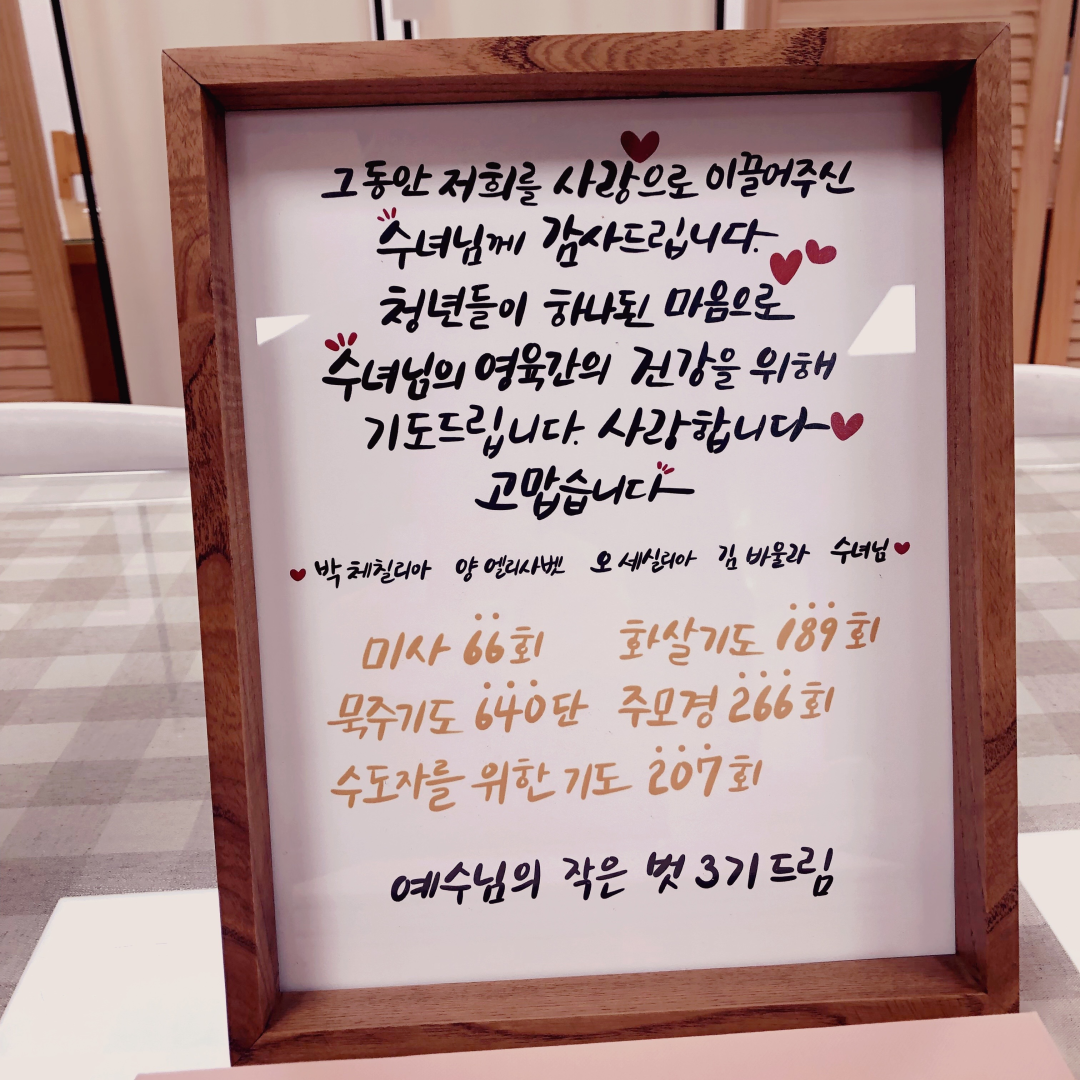 그동안 저희를 사랑으로 이끌어주신
수녀님께 감사드립니다.
청년들이 하나된 마음으로
수녀님의 영육간의 건강을 위해
기도드립니다. 사랑합니다
고맙습니다
박 체칠리아 양 엘리사벳 오 세실리아 김 바울라 수녀님
미사 66회 화살기도 189회
묵주기도 640단 주모경 266회
수도자를 위한 기도 207회
예수님의 작은 벗 3기 드림